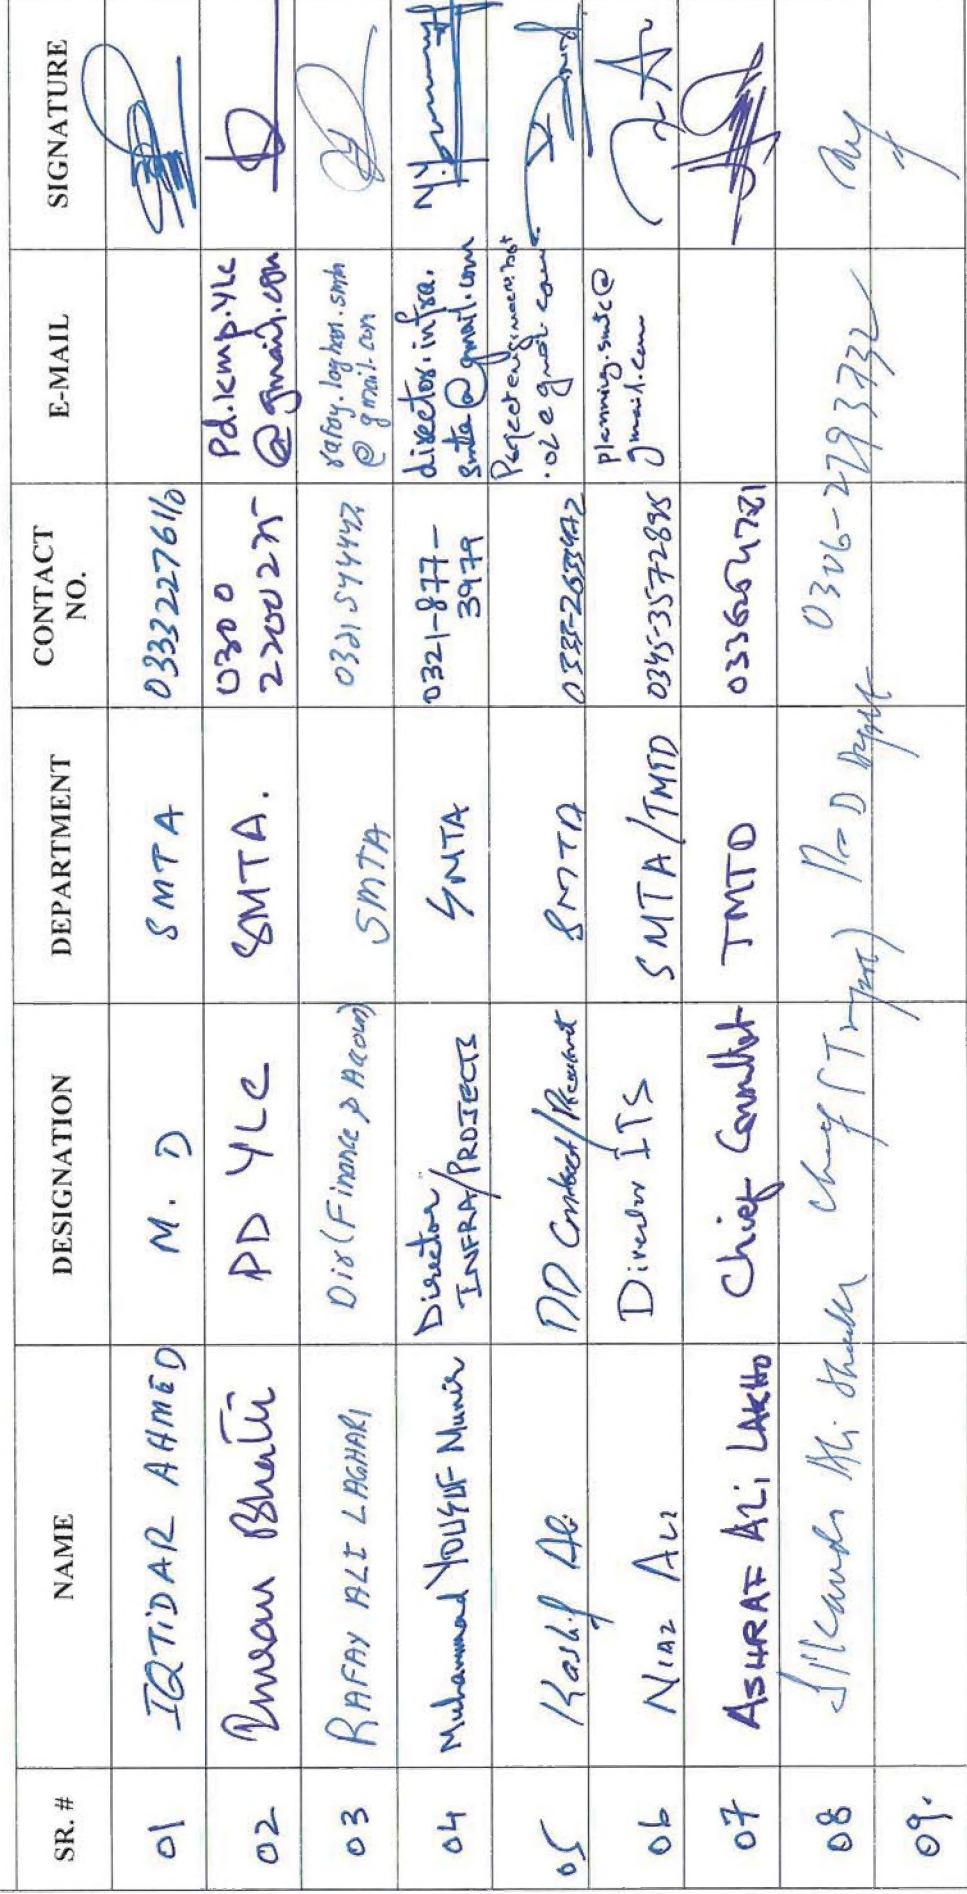 SR. # NAME DESIGNATION DEPARTMENT CONTACT NO. E-MAIL SIGNATURE
01 IQTIDAR AHMED M. D SMTA 03332276110
02 Bhatti PD YLC SMTA. 0300 2200275 Pd.kmp.YLC @gmail.com
03 RAFAY ALI LAGHARI Dir (Finance & Accoun) SMTA 0321 5444427 rafay.laghari.smta @gmail.com
04 Muhammad YOUSUF Munir Director INFRA/PROJECTS SMTA 0321-877-3979 director.infra.smta@gmail.com
05 Kashif Ali DD Contract/ SMTA
06 NIAZ ALI Director ITS SMTA/TMTD 0345-3572895 planning.smta@gmail.com
07 ASHRAF ALi LAKHO Chief Consultant TMTD
08 Ali Chief (Transport) P&D Deptt 0306-2793732
09.